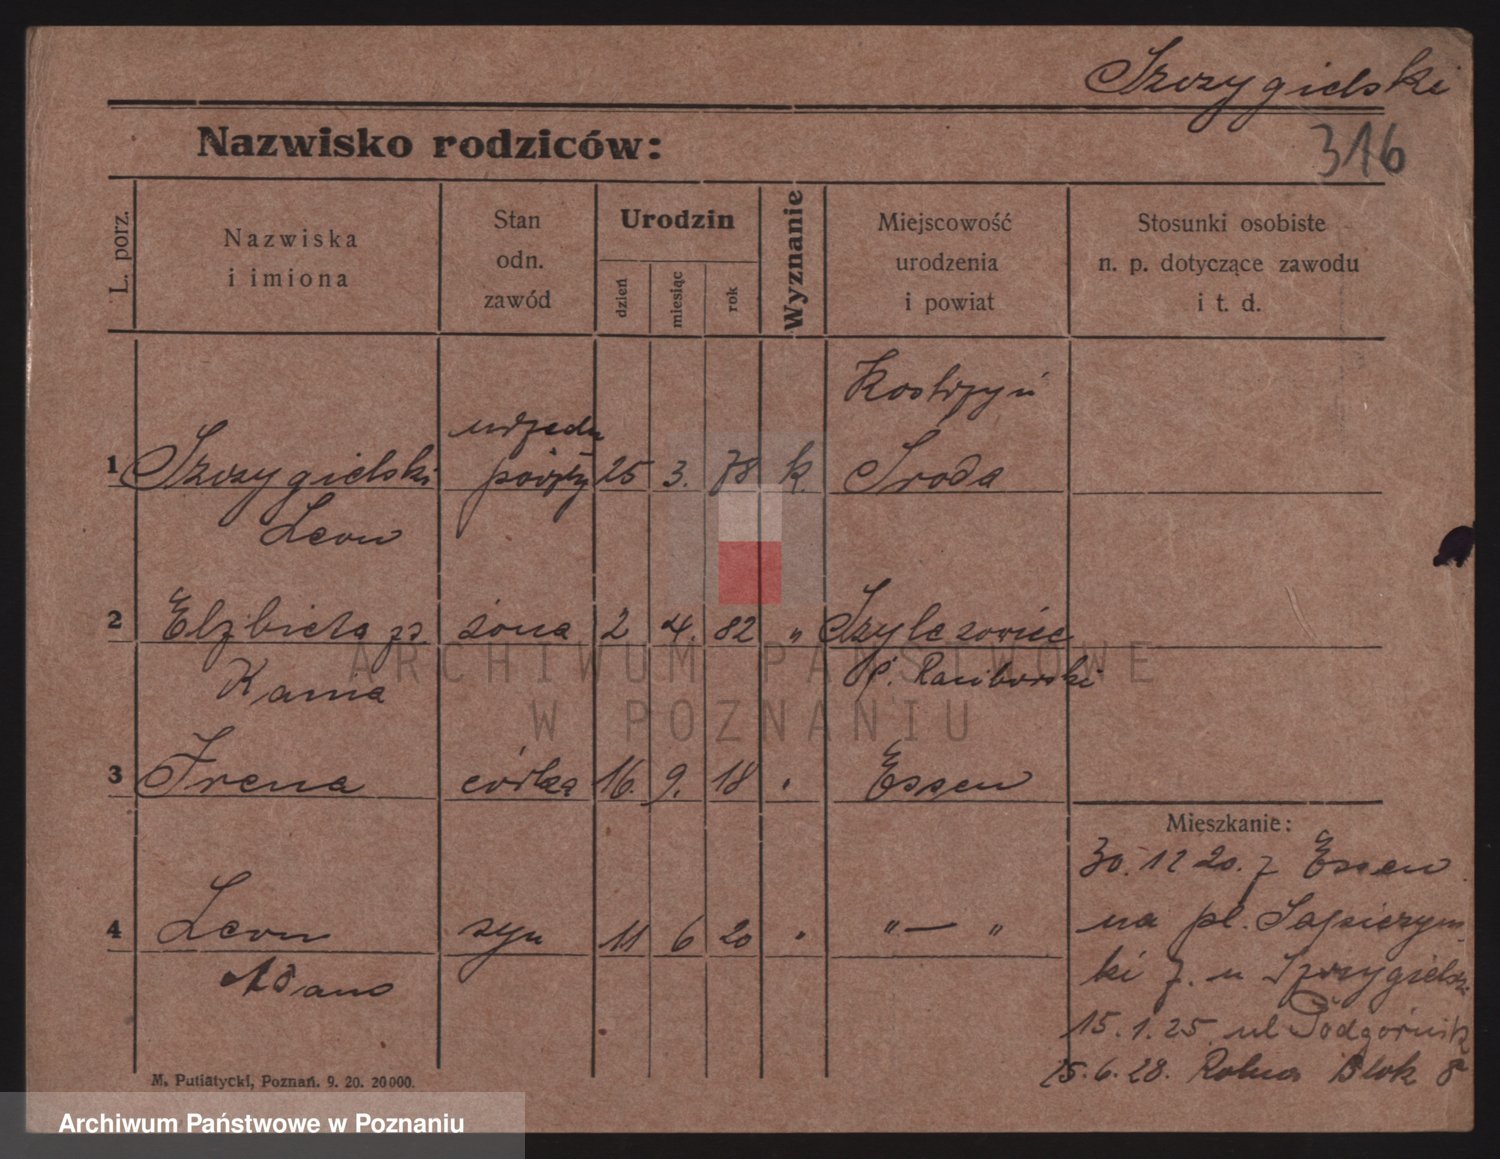 Szczygielski
316
Nazwisko rodziców:
L. porz.
Nazwiska
i imiona
Stan
odn.
zawód
Urodzin
dzień
miesiąc
rok
Wyznanie
Miejscowość
urodzenia
i powiat
Stosunki osobiste
n. p. dotyczące zawodu
i t. d.
Kostrzyń
1 Szczygielski 25 3. 78 k. Środa
Leon
2 Elżbieta zd żona 2 4. 82 "
Kania p. Raciborski
3 Irena córka 16. 9. 18 " Essen
Mieszkanie:
30.12 20. z Essen
na pl. Sapieżyń-
ki z. u Szczygielski
4 Leon syn 11 6 20 " " — "
Adam
15.1.25. ul Podgórnik
25.6.28. Rolna Blok 8
M. Putiatycki, Poznań. 9. 20. 20000.
ARCHIWUM PAŃSTWOWE
W POZNANIU
Archiwum Państwowe w Poznaniu